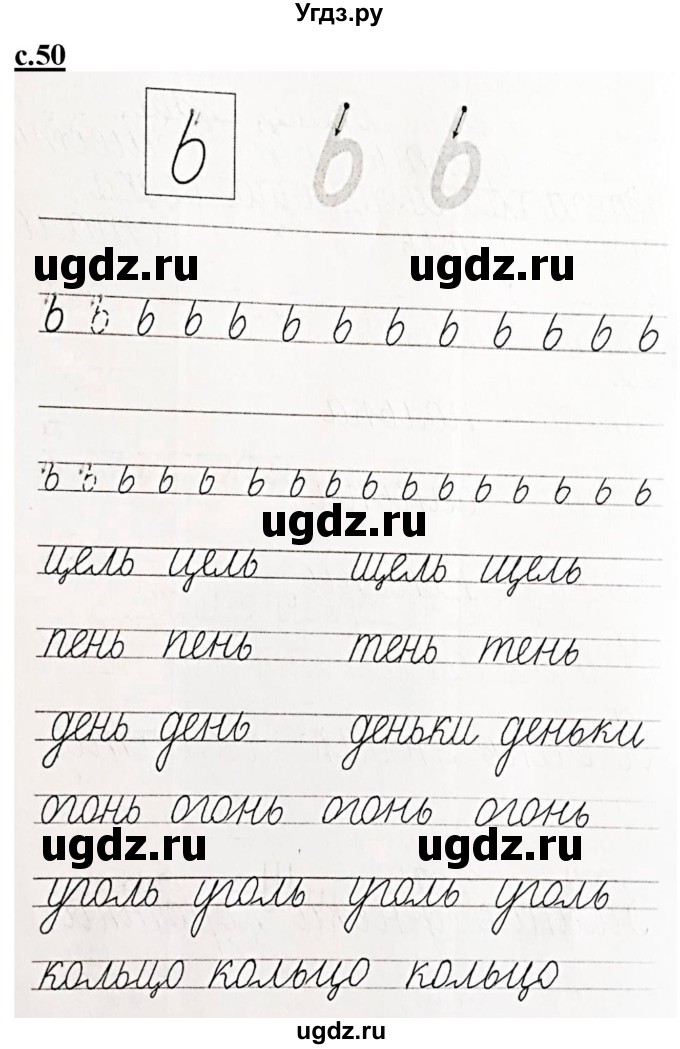 Угдз.ру
с.50
ь ь ь
ugdz.ru ugdz.ru
ь ь ь ь ь ь ь ь ь ь ь ь ь
ь ь ь ь ь ь ь ь ь ь ь ь ь ь ь ь
ugdz.ru
цель цель щель щель
пень пень тень тень
день день деньки деньки
огонь огонь огонь огонь
ugdz.ru ugdz.ru
уголь уголь уголь уголь
кольцо кольцо кольцо
ugdz.ru